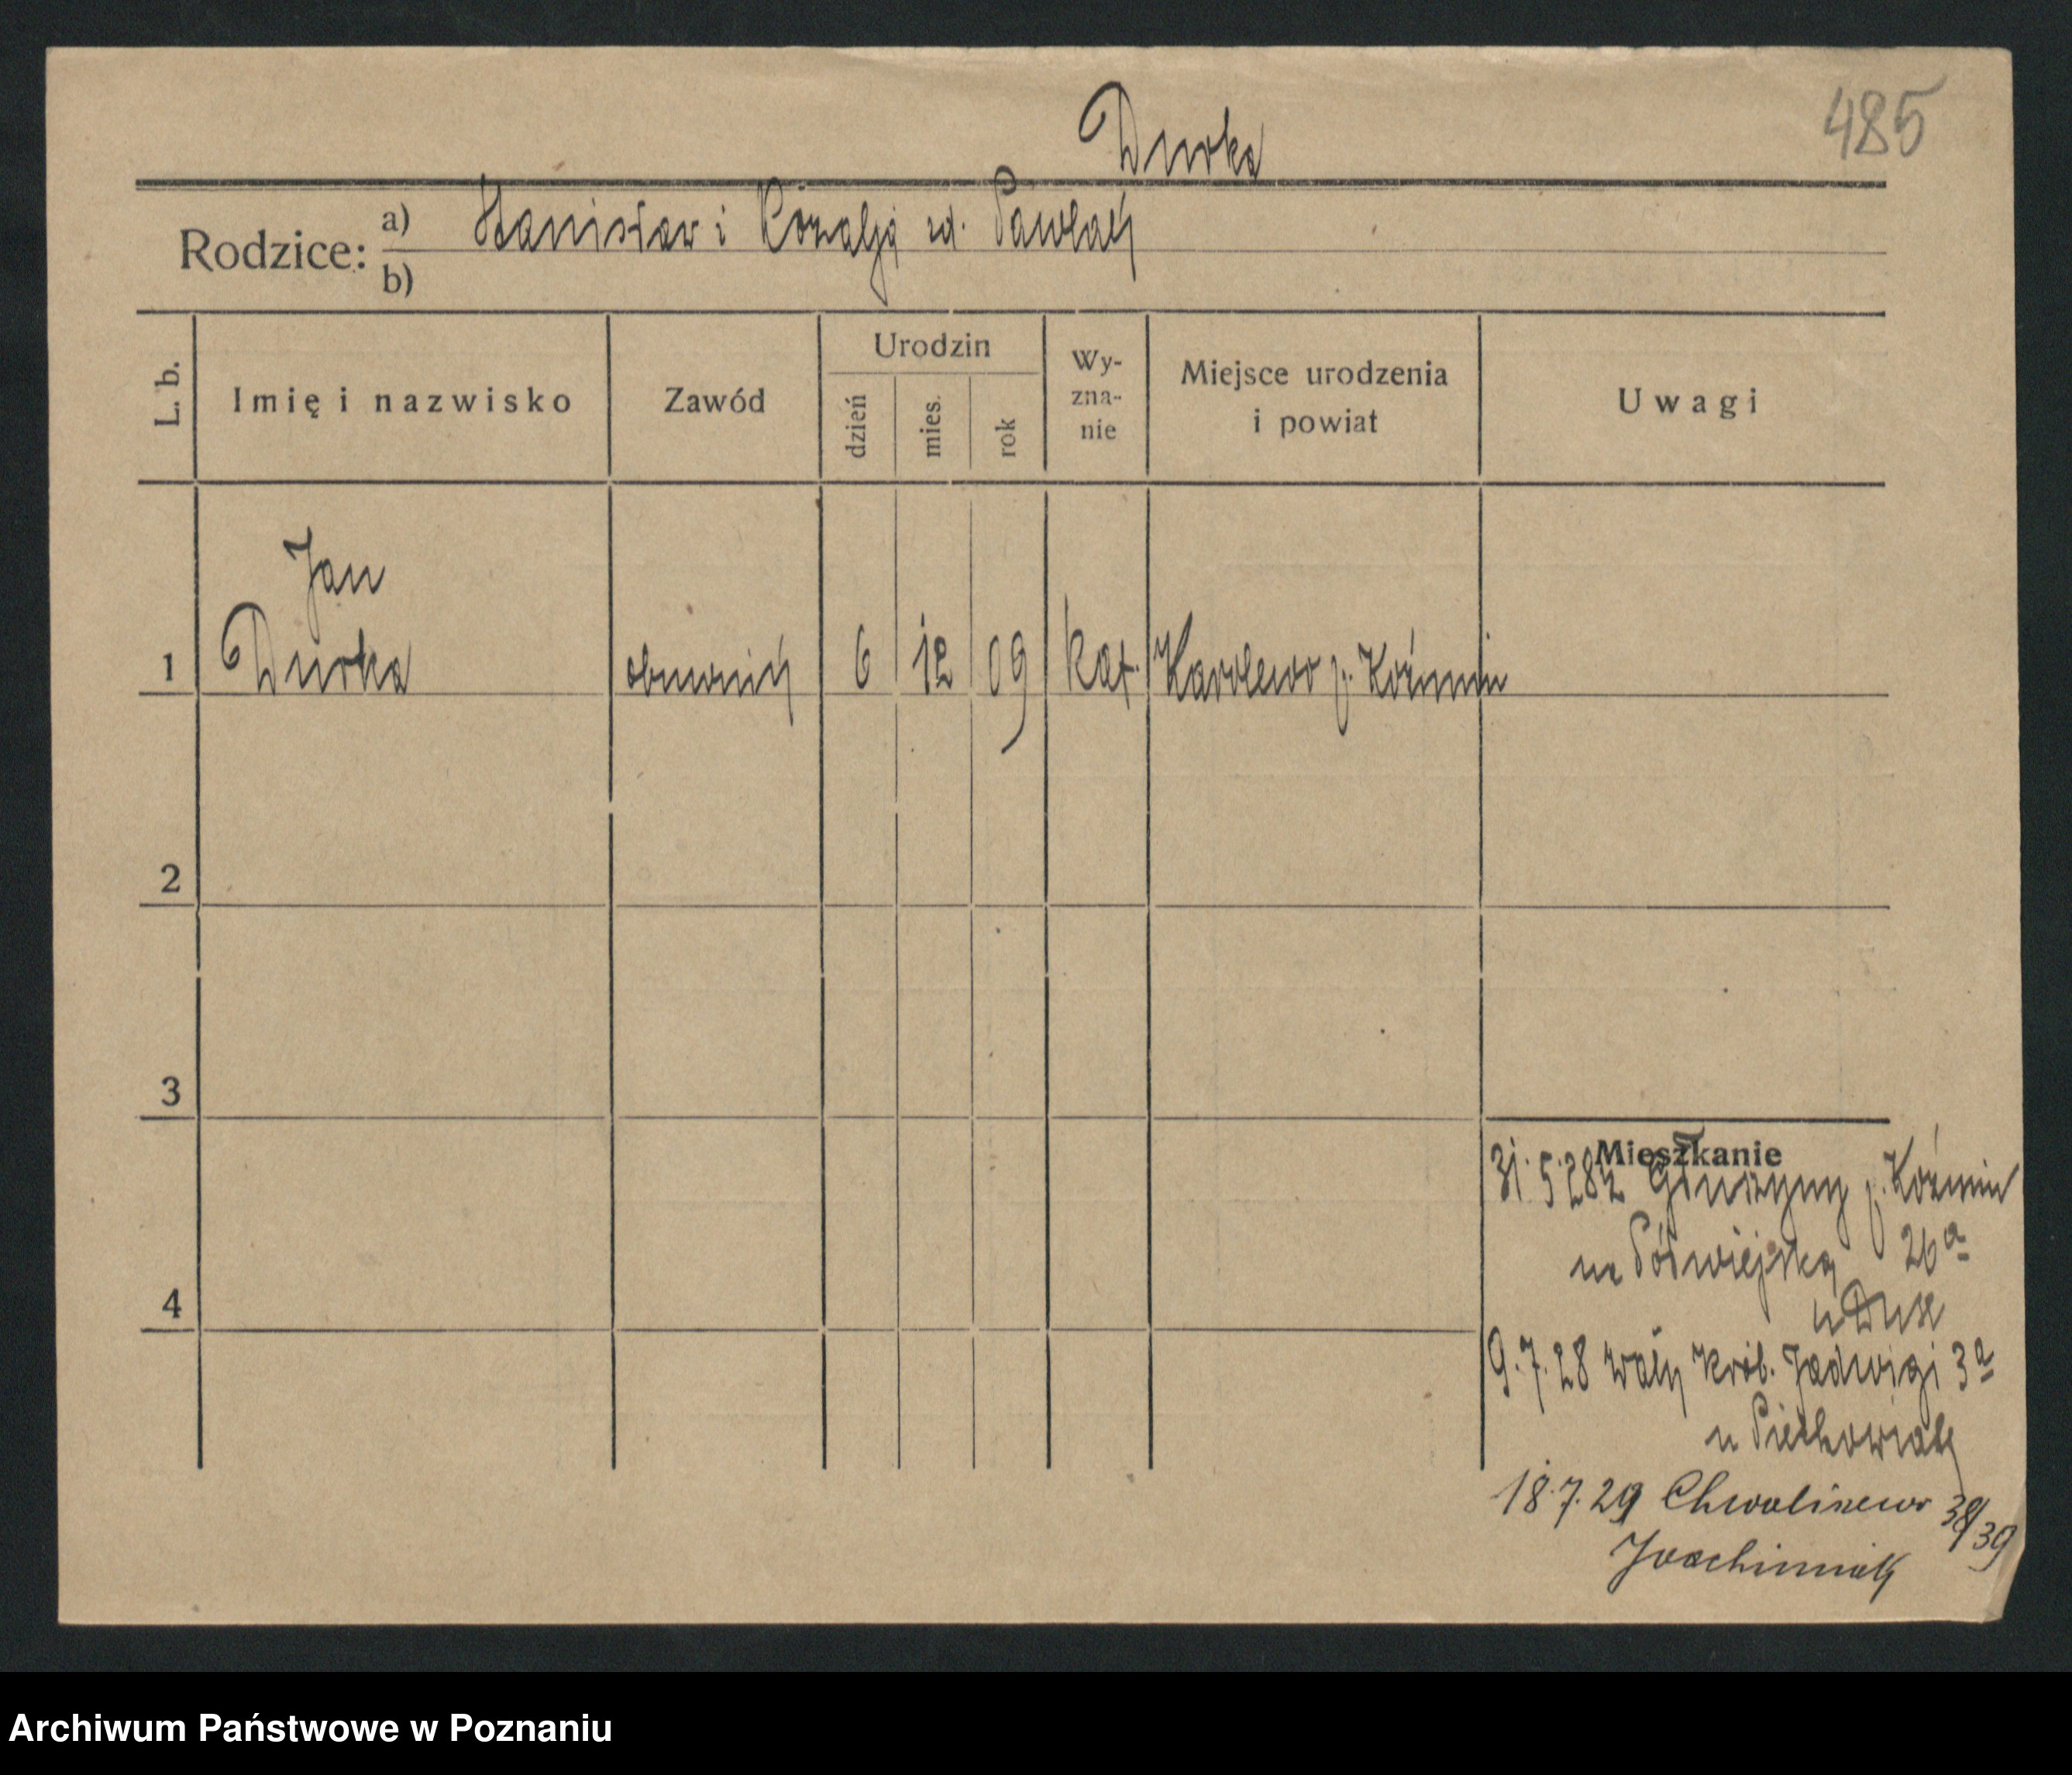 485
Durka
Rodzice: a) Stanisław i Rozalja zd. Pawlak
b)
L. b. Imię i nazwisko Zawód Urodzin dzień mies. rok Wy-zna-nie Miejsce urodzenia i powiat Uwagi
Jan
1 Durka obuwnik 6 12 09 kat. Karolewo p. Koźmin
2
3
Mieszkanie
31.5.28 z p. Koźmin
na Półwiejską 26a
4
9.7.28 Wały Król. Jadwigi 3a
u Piechowiak
18.7.29 Chwaliszewo 38/39
Joachimiak
Archiwum Państwowe w Poznaniu